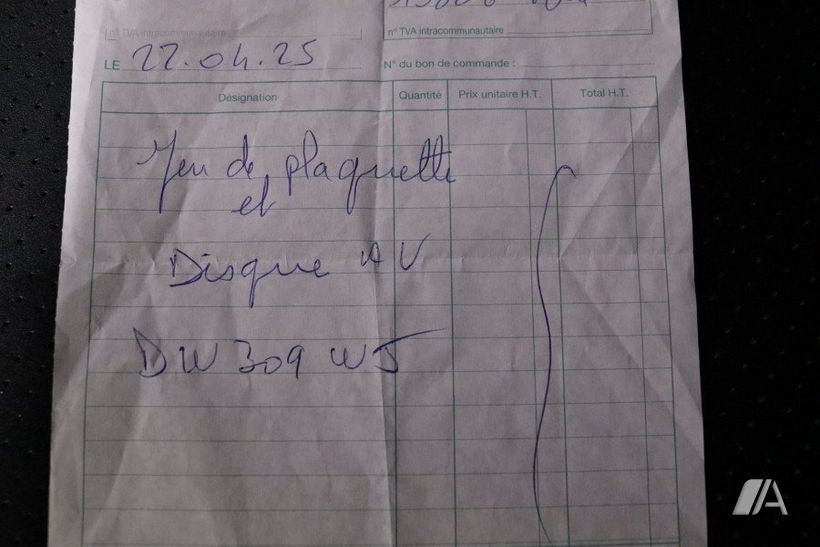 n° TVA intracommunautaire
n° TVA intracommunautaire
LE 22.04.25
N° du bon de commande :
Désignation Quantité Prix unitaire H.T. Total H.T.
Jeu de plaquette
et
Disque AV
DW 309 WJ